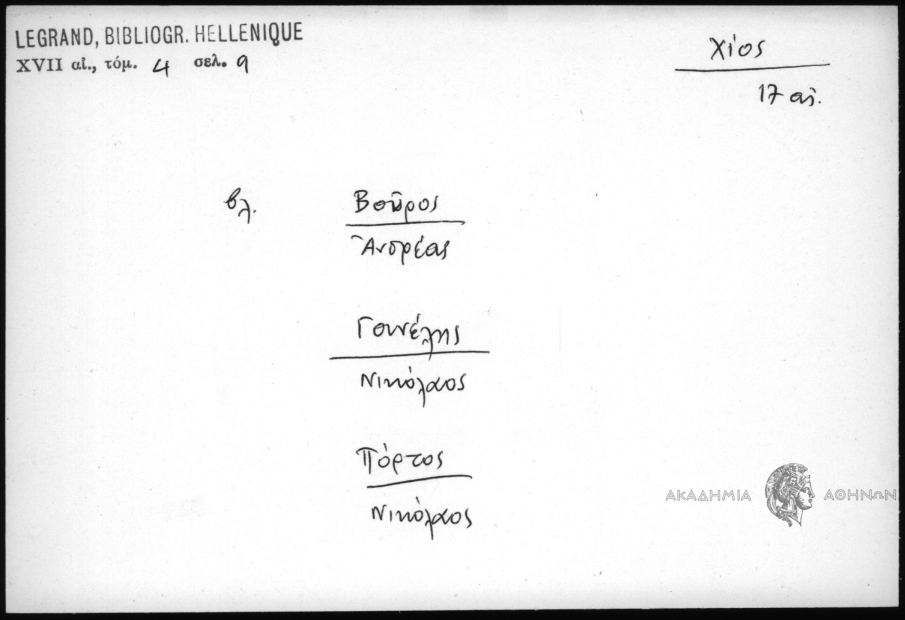 LEGRAND, BIBLIOGR. HELLENIQUE
XVII αἰ., τόμ. 4 σελ. 9
Χίος
17 αἰ.
βλ.
Βοῦρος
Ἀνδρέας
Γουνέλης
Νικόλαος
Πόρτος
Νικόλαος
ΑΚΑΔΗΜΙΑ ΑΘΗΝΩΝ